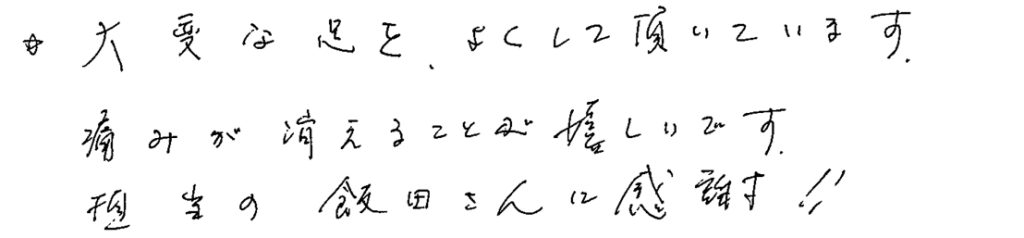 ☆ 大変な足を、よくして頂いています。
痛みが消えることが嬉しいです。
担当の飯田さんに感謝す!!